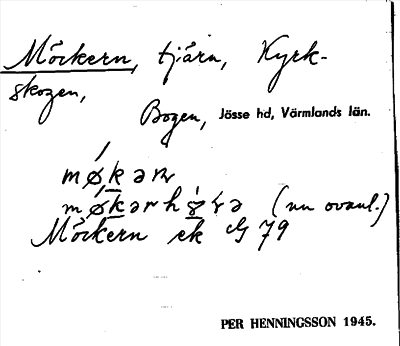 Möckern, tjärn, Kyrk-
skogen,
Bogen, Jösse hd, Värmlands län.
møkərn
(nu ovanl.)
Möckern ek G 79
PER HENNINGSSON 1945.